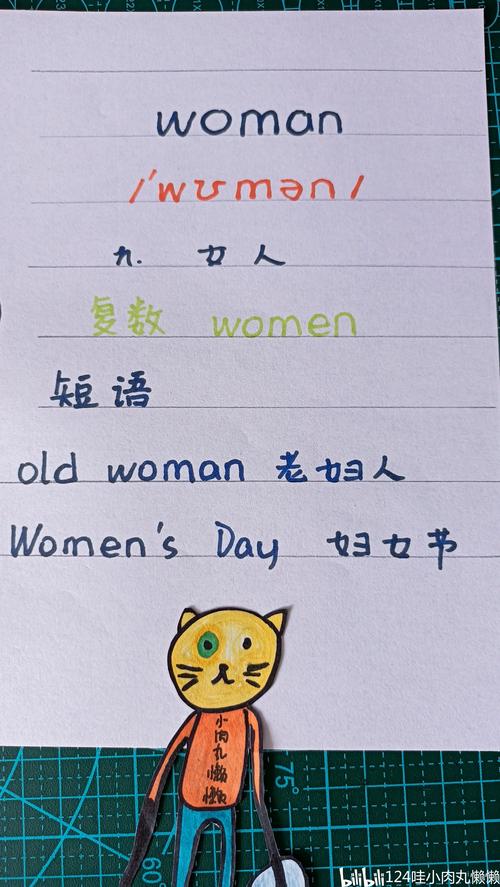 woman
/'wʊmən/
n. 女人
复数 women
短语
old woman 老妇人
Women's Day 妇女节
小肉丸懒懒
75°
60°
bilibili 124哇小肉丸懒懒